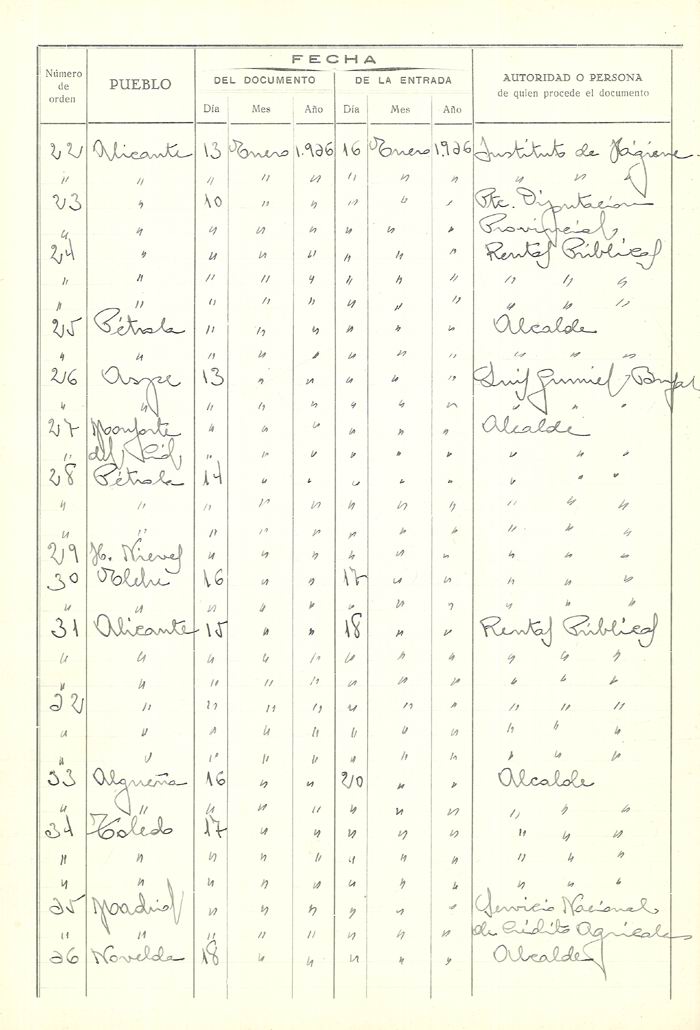 FECHA
Número de orden PUEBLO DEL DOCUMENTO DE LA ENTRADA AUTORIDAD O PERSONA de quien procede el documento
Día Mes Año Día Mes Año
22 Alicante 13 Enero 1.926 16 Enero 1926 Instituto de Higiene
" " " " " " " " " " "
23 " 10 " " " " " Pte. Diputacion
" " " " " " " " Provincial,
24 " " " " " " " Rentas Públicas
" " " " " " " " " " "
" " " " " " " " " " "
25 Pétrola " " " " " " Alcalde
" " " " " " " " " " "
26 Aspe 13 " " " " " Luis Gumiel
" " " " " " " " " " "
27 Monforte " " " " " " Alcalde
" del Cid, " " " " " " " " "
28 Pétrola 14 " " " " " " " "
" " " " " " " " " " "
" " " " " " " " " " "
29 H. Nieves " " " " " " " " "
30 Elche 16 " " 17 " " " " "
" " " " " " " " " " "
31 Alicante 15 " " 18 " " Rentas Públicas
" " " " " " " " " " "
" " " " " " " " " " "
32 " " " " " " " " " "
" " " " " " " " " " "
" " " " " " " " " " "
33 Algueña 16 " " 20 " " Alcalde
" " " " " " " " " " "
34 Toledo 17 " " " " " " " "
" " " " " " " " " " "
" " " " " " " " " " "
35 Madrid " " " " " " Servicio Nacional
" " " " " " " " de Crédito Agricola
36 Novelda 18 " " " " " Alcalde